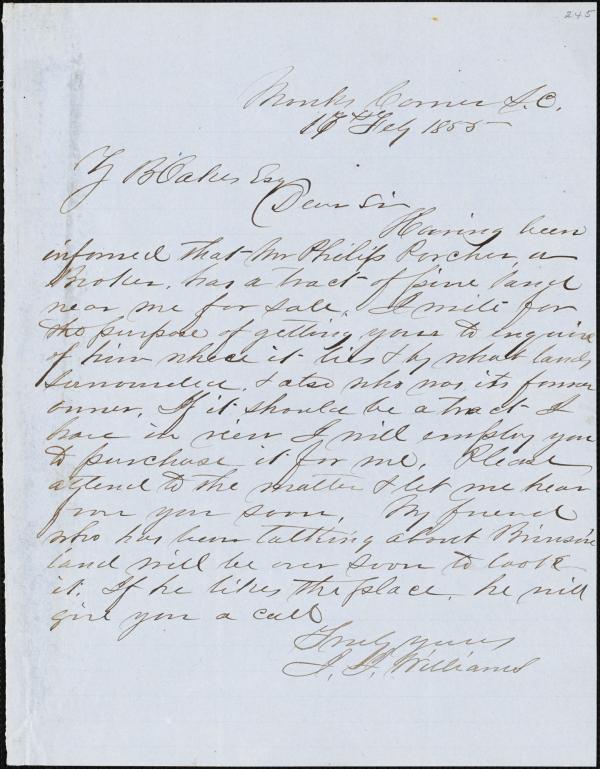 245
Monks Corner S.C.
Feby 1855
Z B Oakes Esq
Dear Sir
Having been
informed that Mr Philip Porcher, a
Broker, has a tract of pine land
near me for sale, I write for
the purpose of getting you to enquire
of him where it lies & by what lands
surrounded, & also who was its former
owner. If it should be a tract I
have in view I will employ you
to purchase it for me. Please
attend to the matter & let me hear
from you soon. My friend
who has been talking about
land will be over soon to look
it. If he likes the place, he will
give you a call
Truly yours
Williams